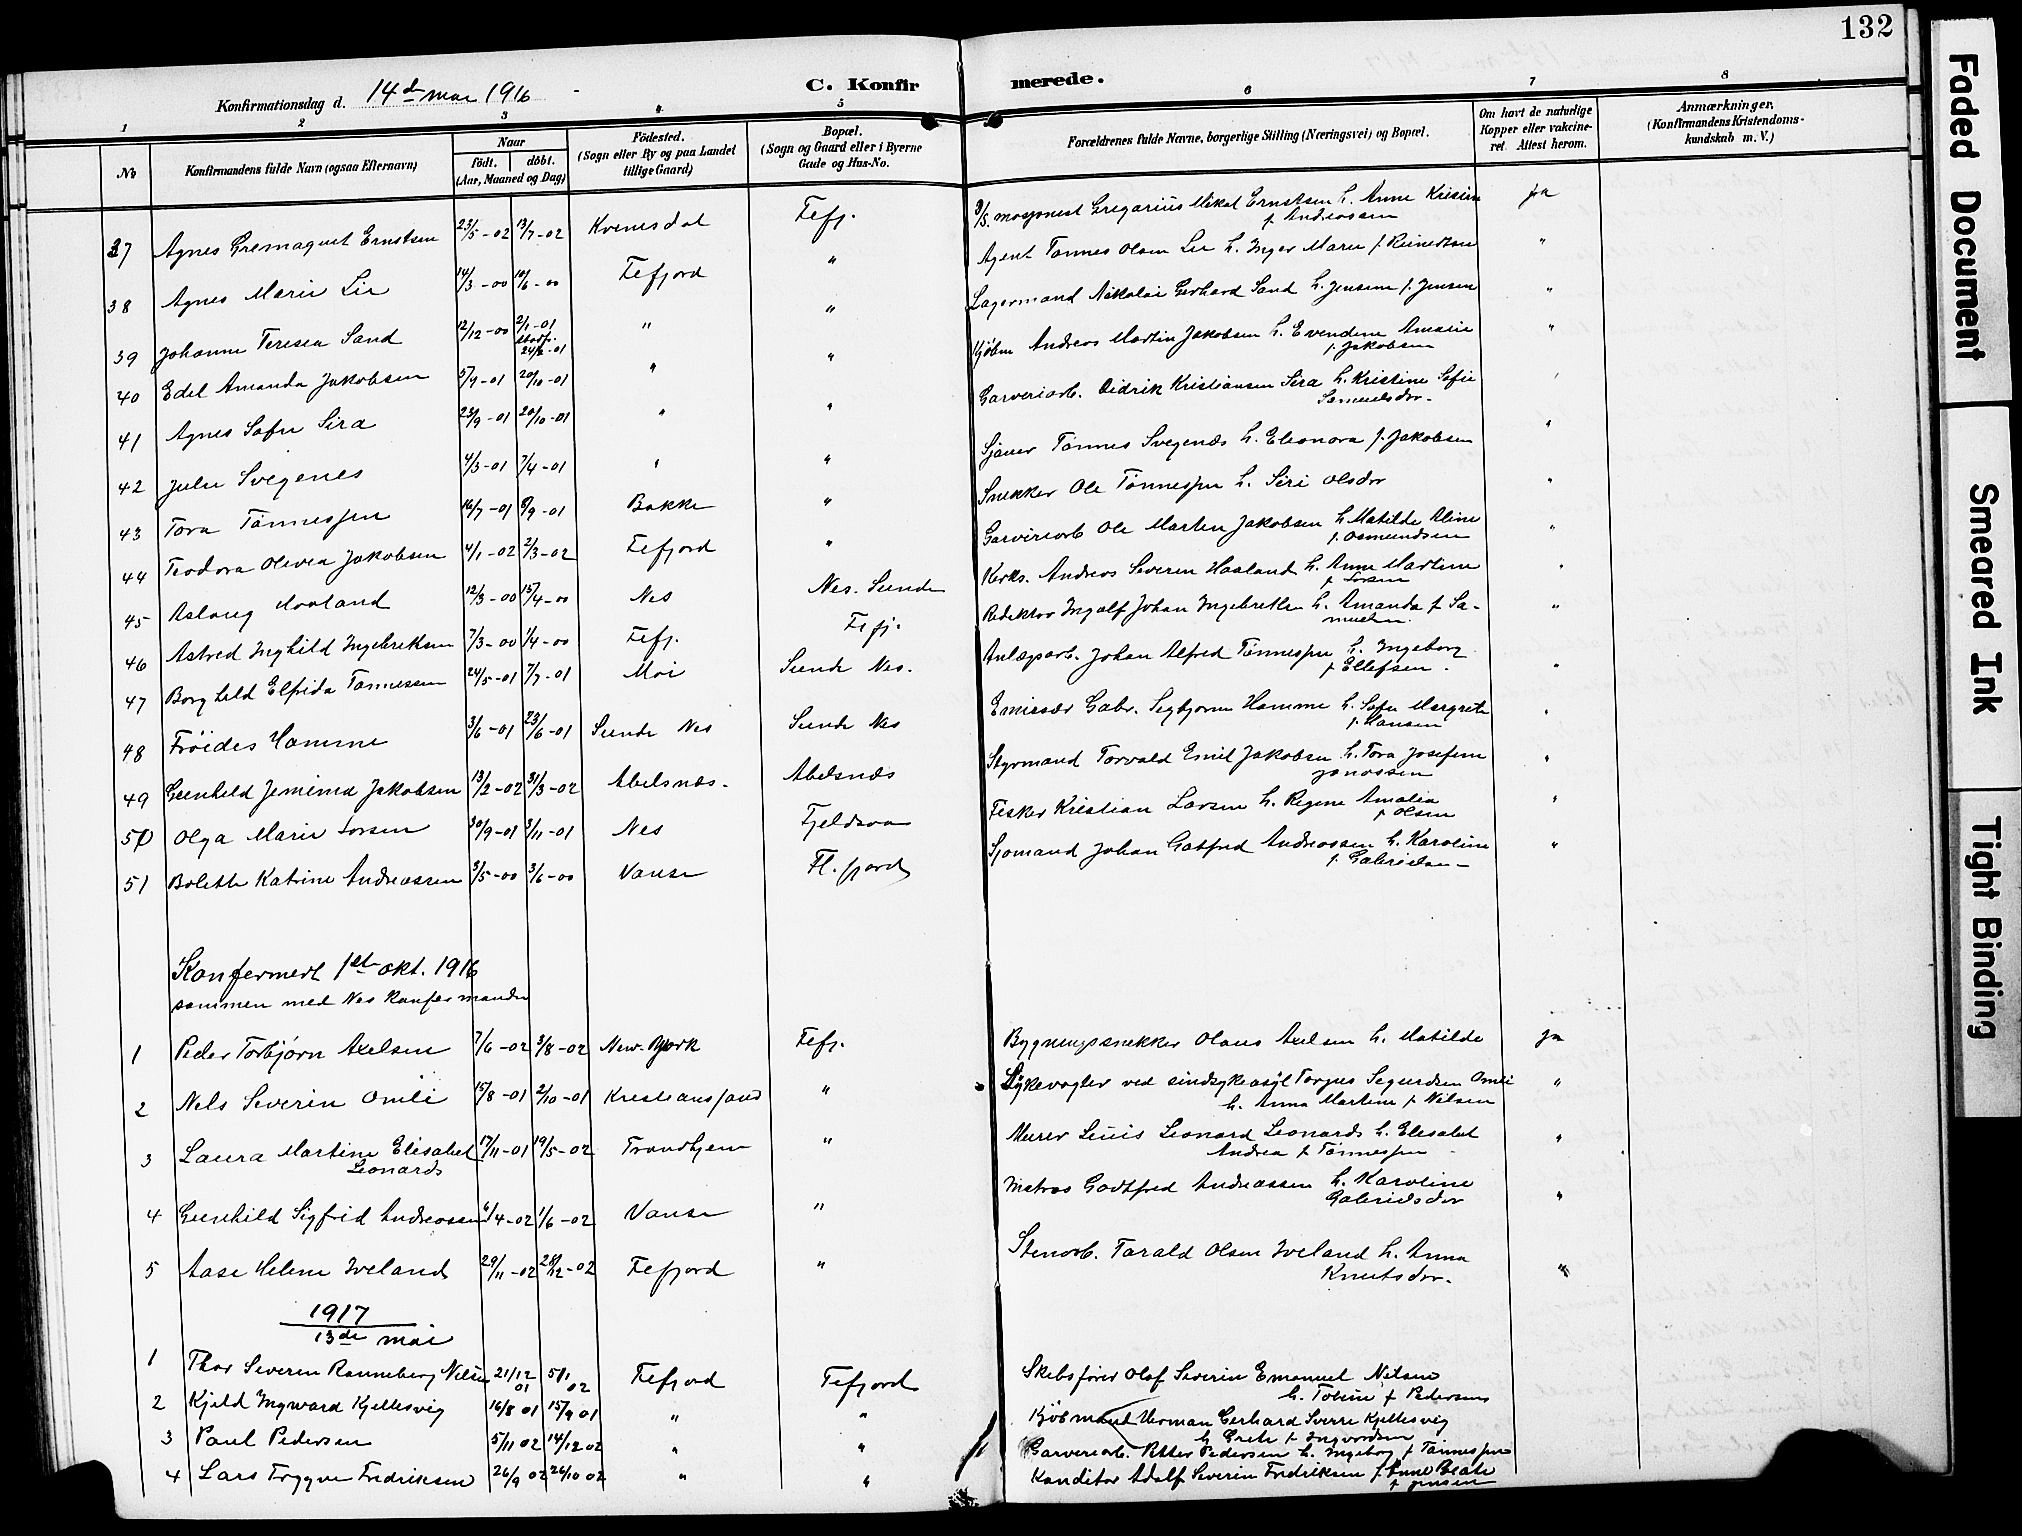 132
Konfirmationsdag d. 14de mai 1916
C. Konfirmerede.
1 2 3 4 5 6 7 8
No
Konfirmandens fulde Navn (ogsaa Efternavn)
Naar
födt. döbt.
(Aar, Maaned og Dag)
Födested.
(Sogn eller By og paa Landet
tillige Gaard)
Bopæl.
(Sogn og Gaard eller i Byerne
Gade og Hus-No.
Forældrenes fulde Navne, borgerlige Stilling (Næringsvei) og Bopæl.
Om havt de naturlige
Kopper eller vakcine-
ret. Attest herom.
Anmærkninger.
(Konfirmandens Kristendoms-
kundskab m. V.)
37 Agnes Ernstsen 23/5-02 13/7-02 Kvinesdal Fefj. Gregarius Mikal Ernstsen h. Anne Kristine ja
f. Andreassen
38 Agnes Marie Lie 14/3-00 10/6-00 Fefjord " Agent Tønnes Olsen Lie h. Inger Marie f. Reinertsen "
39 Johanne Teresea Sand 12/12-00 2/1-01 " " Lagermand Nikolai Gerhard Sand h. Jensine f. Jensen "
stadf.
24/2-01
40 Edel Amanda Jakobsen 5/9-01 20/10-01 " " Kjøbm Andreas Martin Jakobsen h. Evendine Amalie "
f. Jakobsen
41 Agnes Sofie Sira 23/9-01 20/10-01 " " Garveriarb. Didrik Kristiansen Sira h. Kristine Sofie
Samuelsdtr.
42 Julie Svegenes 4/3-01 7/4-01 " " Sjauer Tønnes Svegenæs h. Eleonora f. Jakobsen "
43 Tora Tønnessen 16/7-01 8/9-01 Bakke " Snekker Ole Tønnessen h. Siri Olsdtr "
44 Teodora Olivia Jakobsen 4/1-02 2/3-02 Fefjord " Garveriarb Ole Martin Jakobsen h. Matilde Aline "
f. Osmundsen
45 Aslaug Haaland 12/3-00 15/4-00 Nes Nes. Sunde Kirks. Andreas Severin Haaland h. Anne Martine "
f. Larsen
46 Astrid Inghild Ingebretsen 7/3-00 1/4-00 Fefj. Fefj. Redaktør Ingolf Johan Ingebretsen h. Amanda f. Sa- "
muelsen.
47 Borghild Elfrida Tønnessen 24/5-01 7/7-01 Moi Sunde Nes. Anlægsarb. Johan Alfred Tønnessen h. Ingeborg "
f. Ellefsen.
48 Frøides Hamme 3/6-01 23/6-01 Sunde Nes Sunde Nes Emissær Gabr. Sigbjørn Hamme h. Sofie Margrete "
f. Hansen
49 Gunhild Jemima Jakobsen 13/2-02 31/3-02 Abelsnæs. Abelsnæs Styrmand Torvald Emil Jakobsen h. Tora Josefine "
Jonassen
50 Olga Marie Larsen 30/9-01 3/11-01 Nes Fjeldsaa Fisker Kristian Larsen h. Regine Amalia "
f. Olsen
51 Bolette Katrine Andreassen 3/5-00 3/6-00 Vanse Fl.fjord Sjømand Johan Gotfred Andreassen h. Karoline "
f. Gabrielsen
Konfermert 1st okt. 1916
sammen med Nes konfermander
1 Peder Torbjørn Axelsen 7/6-02 3/8-02 New-York Fefj. Bygningssnekker Olaus Axelsen h. Matilde ja
2 Nels Severin Omli 15/8-01 2/10-01 Kristiansand " Sykevogter ved sindsykeasyl Torjus Sigurdsen Omli "
h. Anna Martine f. Nilsen
3 Laura Martine Elisabet 17/11-01 19/5-02 Trondhjem " Murer Louis Leonard Leonards h. Elisabet "
Leonards Andrea f. Tønnessen
4 Gunhild Sigfrid Andreassen 6/4-02 1/6-02 Vanse " Matros Godtfred Andreassen h. Karoline "
Gabrielsdtr
5 Aase Helene Iveland 29/11-02 28/12-02 Fefjord " Stenarb. Tarald Olsen Iveland h. Anna "
Knutsdtr.
1917
13de mai
1 Thor Severin Ranneberg Nilsen 21/12 5/1 Fefjord Fefjord Skibsfører Olaf Severin Emanuel Nilsen
01 02 h. Toline f. Pedersen
2 Kjeld Ingward Kjellesvig 16/8 01 15/9 01 " " Kjøbmand Herman Gerhard Sverre Kjellesvig
h. Grete f. Ingvardsen
3 Paul Pedersen 5/11 02 14/12 02 " " Garveriarb. Peder Pedersen h. Ingeborg f. Tønnessen
4 Lars Trygve Fredriksen 26/9 02 26/10 02 " " Konditor Adolf Severin Fredriksen f. Anne Beate
f. Jensen
Faded Document
Smeared Ink
Tight Binding